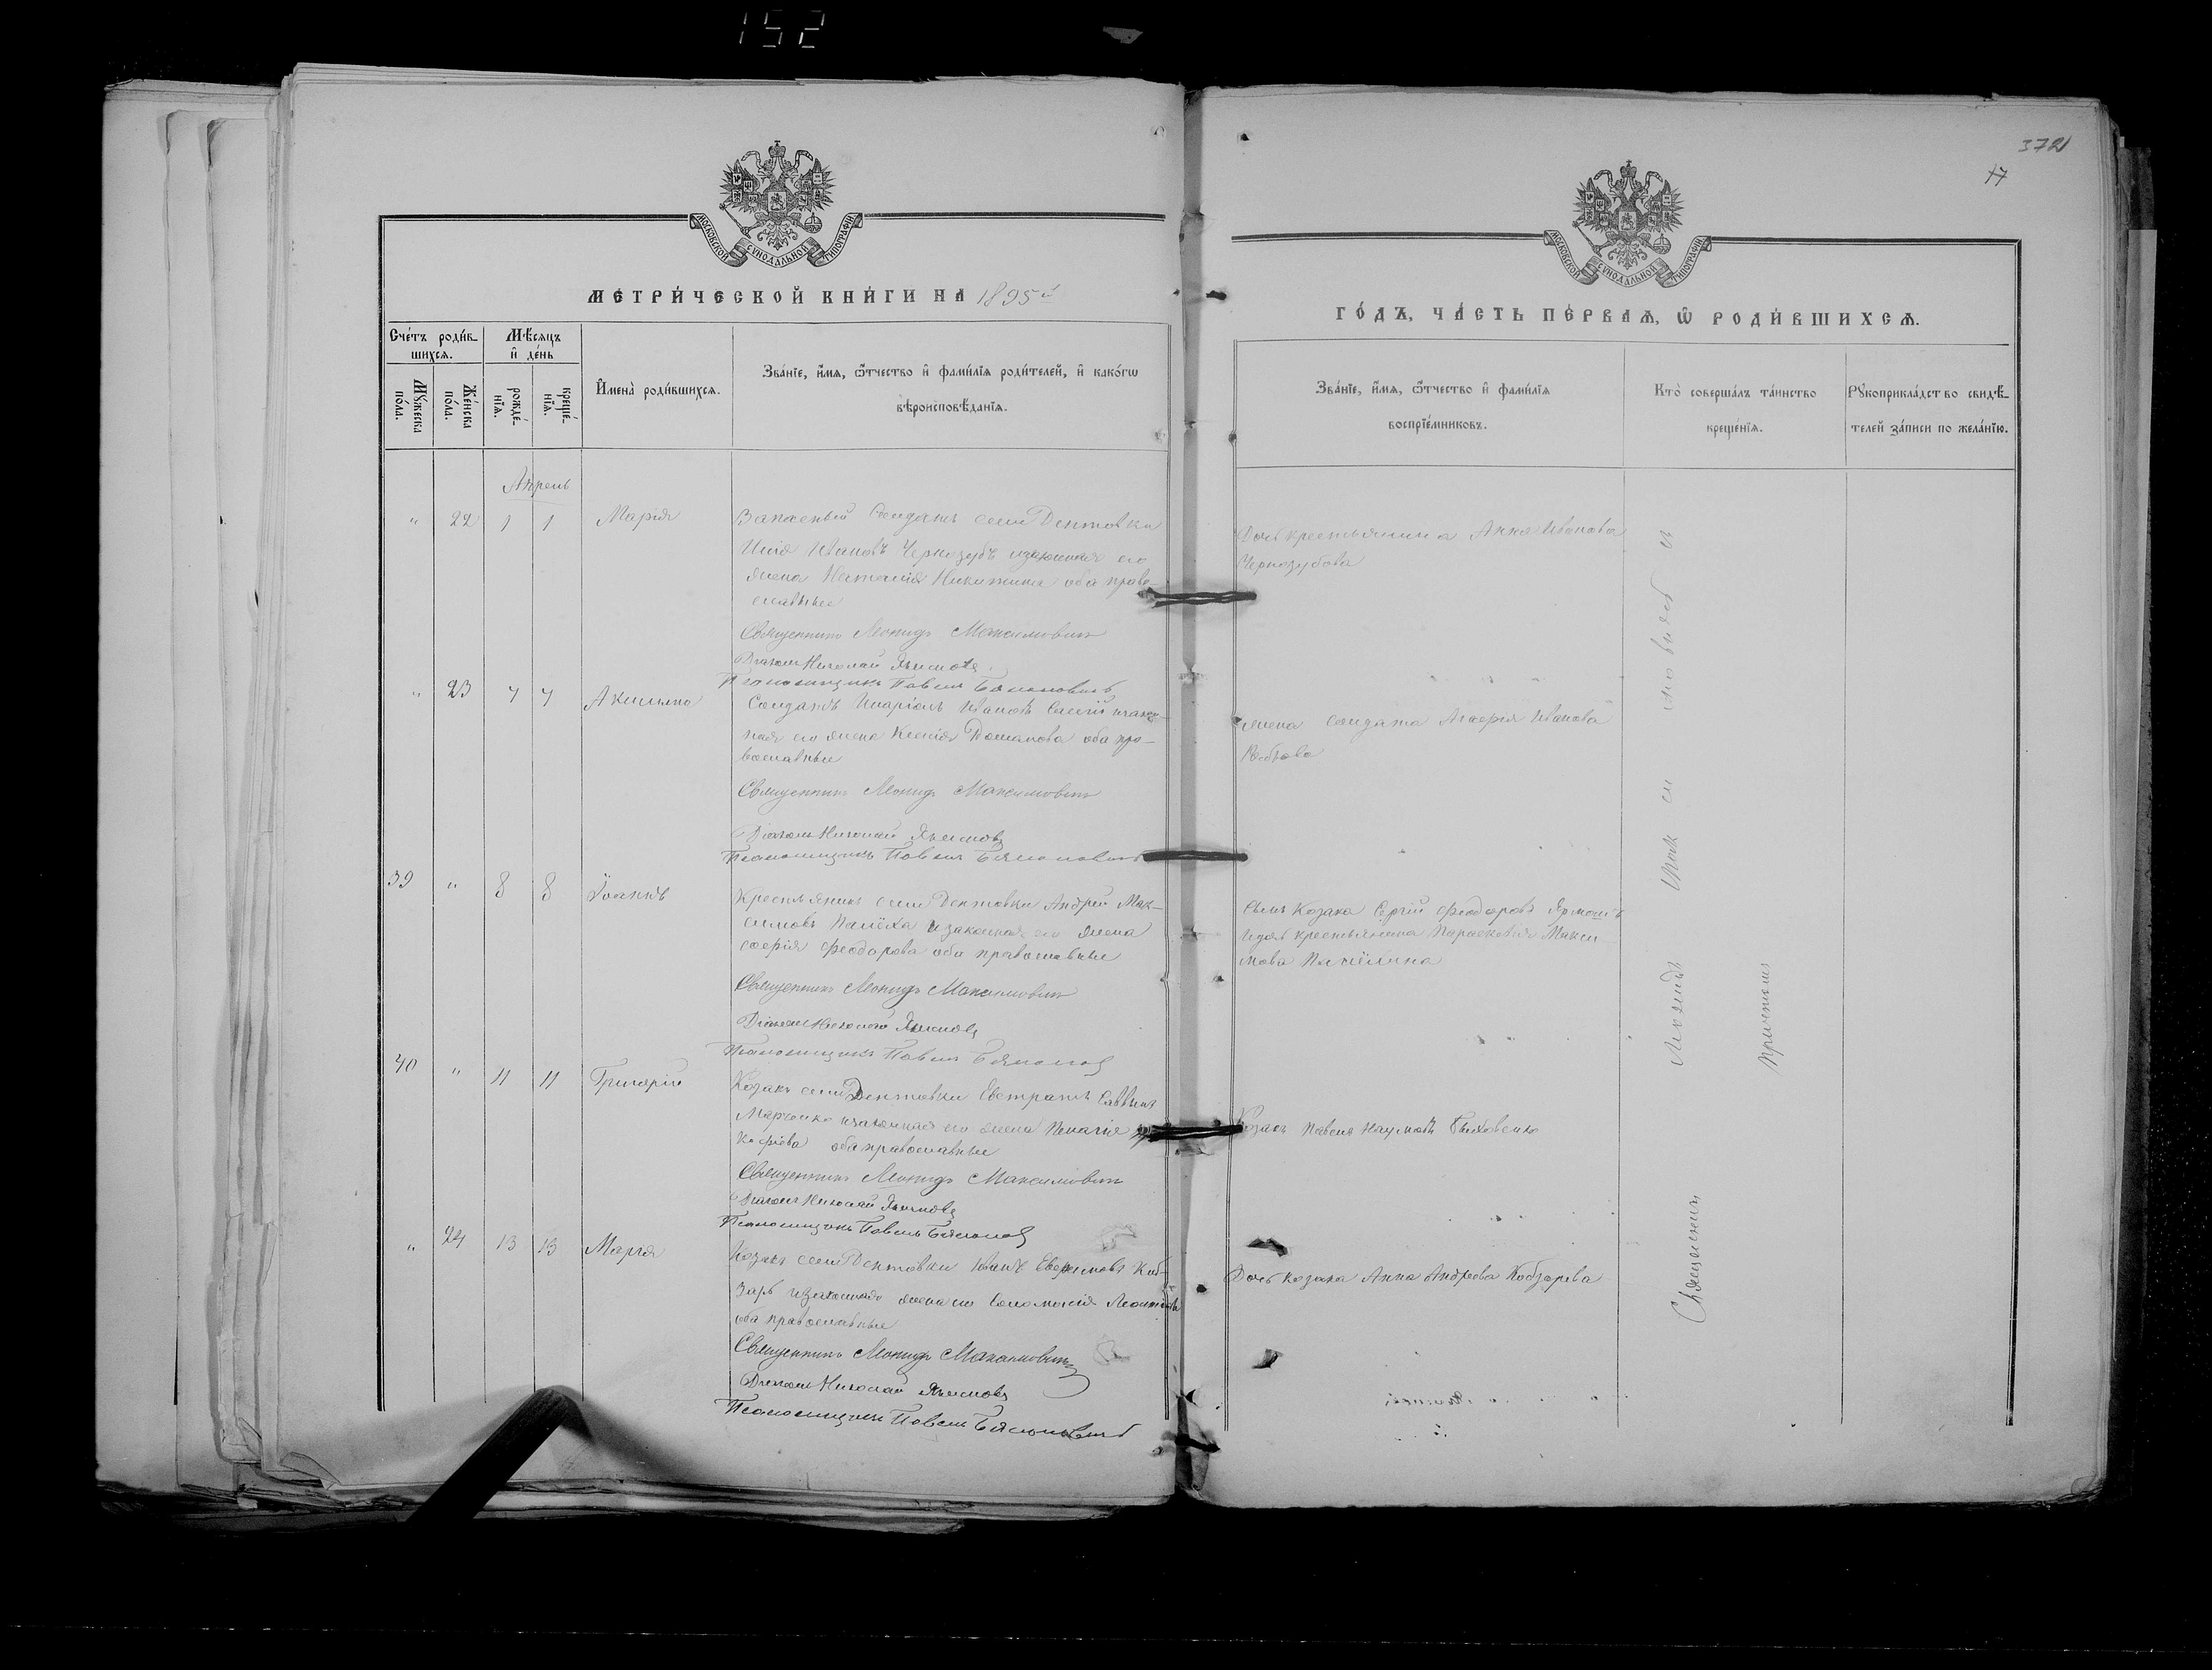 152
372
17
МОСКОВСКОЙ СѴНОДАЛЬНОЙ ТИПОГРАФІИ
МЕТРИ́ЧЕСКОЙ КНИ́ГИ НА 1895 й
Сче́тъ роди́в-
шихся.
Мѣ́сяцъ
и де́нь
Мꙋ́жеска
по́ла.
Же́нска
по́ла.
рожде́-
нїя.
креще́-
нїя.
Имена̀ роди́вшихся.
Зва́нїе, и́мя, ѻ́тчество и фами́лїя роди́телей, и како́гѡ
вѣроисповѣ́данїя.
Апрель
" 22 1 1 Марія
Запасный Солдатъ села Дептовки
Илія Ивановъ Чернозубъ и законная его
жена Наталія Никитина оба право-
славные
Священникъ Леонидъ Максимовичъ
Діаконъ Николай Якимовъ
Псаломщикъ Павелъ
" 23 7 7 Акилина
Солдатъ Иларіонъ Ивановъ и закон-
ная его жена Ксенія оба пра-
вославные
Священникъ Леонидъ Максимовичъ
Діаконъ Николай Якимовъ
Псаломщикъ Павелъ
39 " 8 8 Іоаннъ
Крестьянинъ села Дептовки Андрей Мак-
симовъ и законная его жена
Софія Феодорова оба православные
Священникъ Леонидъ Максимовичъ
Діаконъ Николай Якимовъ
Псаломщикъ Павелъ
40 " 11 11 Григорій
Козакъ села Дептовки Евстратій Саввинъ
Марченко и законная его жена Пелагія
оба православные
Священникъ Леонидъ Максимовичъ
Діаконъ Николай Якимовъ
Псаломщикъ Павелъ
" 24 13 13 Марія
Козакъ села Дептовки Иванъ Евфимовъ Коб-
зарь и законная жена его Соломонія Леонтіева
оба православные
Священникъ Леонидъ Максимовичъ
Діаконъ Николай Якимовъ
Псаломщикъ Павелъ
МОСКОВСКОЙ СѴНОДАЛЬНОЙ ТИПОГРАФІИ
ГО́ДЪ, ЧА́СТЬ ПЕ́РВАЯ, Ѡ РОДИ́ВШИХСЯ.
Зва́нїе, и́мя, ѻ́тчество и фами́лїя
воспрїе́мниковъ.
Кто̀ соверша́лъ та́инство
креще́нїя.
Рꙋкоприкла́дство свидѣ́-
телей за́писи по жела́нїю.
Дочь крестьянина Анна Иванова
Чернозубова
жена солдата Иванова
Сынъ Козака Сергій Феодоровъ
и дочь крестьянина Параскевія Макси-
мова
Козакъ Павелъ Наумовъ
Дочь козака Анна Андреева Кобзарева
Священникъ Леонидъ Максимовичъ съ
причтомъ